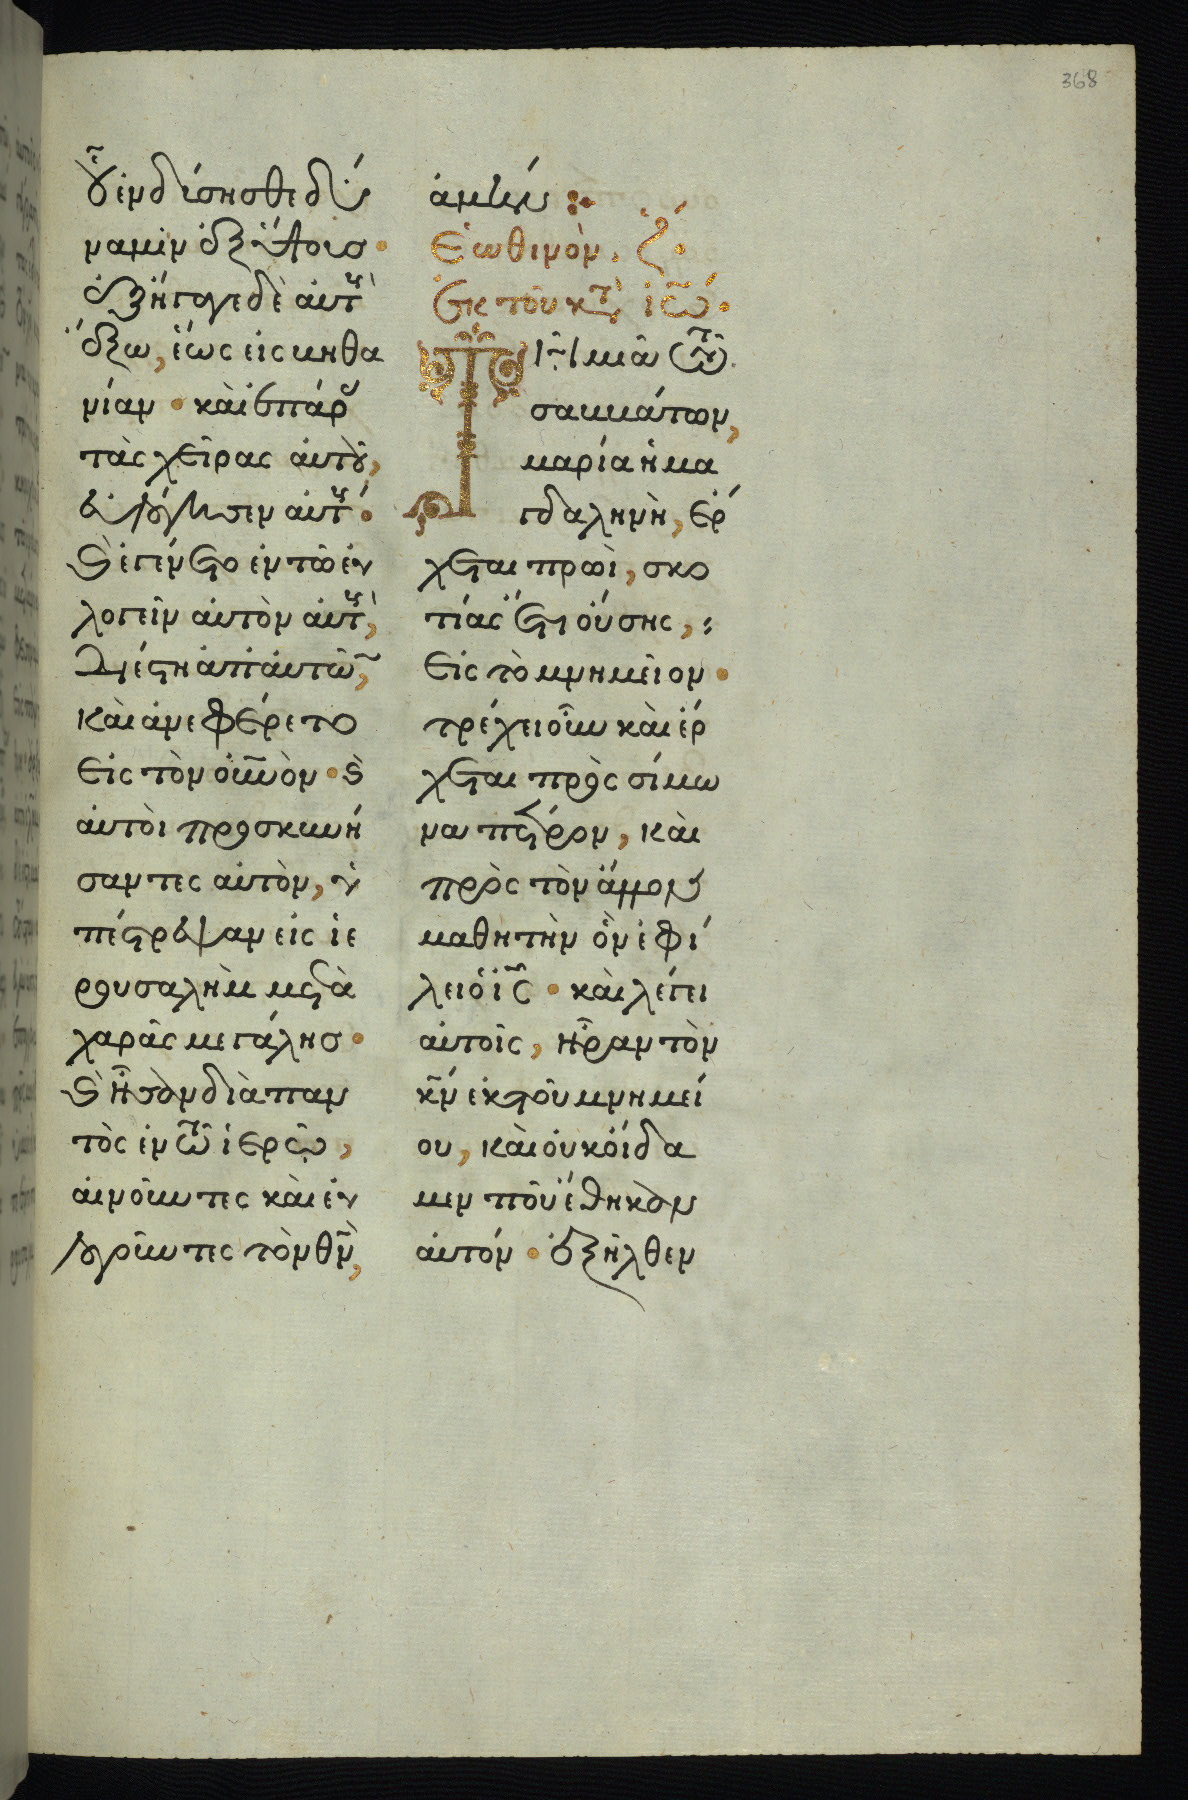 368
οὗ ἐνδύσησθε δύ
ναμιν ἐξ ὕψους·
ἐξήγαγε δὲ αὐτοὺς
ἔξω, ἕως εἰς βηθα
νίαν· καὶ ἐπάρας
τὰς χεῖρας αὐτοῦ,
εὐλόγησεν αὐτούς·
καὶ ἐγένετο ἐν τῷ εὐ
λογεῖν αὐτὸν αὐτοὺς,
διέστη ἀπ' αὐτῶν,
καὶ ἀνεφέρετο
εἰς τὸν οὐνὸν· καὶ
αὐτοὶ προσκυνή
σαντες αὐτὸν, ὑ
πέστρεψαν εἰς ἱε
ρουσαλὴμ μετὰ
χαρᾶς μεγάλησ·
καὶ ἦσαν διὰ παν
τὸς ἐν τῷ ἱερῷ,
αἰνοῦντες καὶ εὐ
λογοῦντες τὸν θν,
ἀμήν:·
Ἑωθινὸν. ζ´·
Ἐκ τοῦ κατὰ ἰω·
Τῇ μιᾷ τῶν
σαββάτων,
μαρία ἡ μα
γδαληνὴ, ἔρ
χεται πρωὶ, σκο
τίας ἔτι οὔσης,
εἰς τὸ μνημεῖον·
τρέχει οὖν καὶ ἔρ
χεται πρὸς σίμω
να πέτρον, καὶ
πρὸς τὸν ἄλλον
μαθητὴν ὃν ἐφί
λει ὁ ις· καὶ λέγει
αὐτοῖς, ἦραν τὸν
κν ἐκ τοῦ μνημεί
ου, καὶ οὐκ οἴδα
μεν ποῦ ἔθηκαν
αὐτόν· ἐξῆλθεν